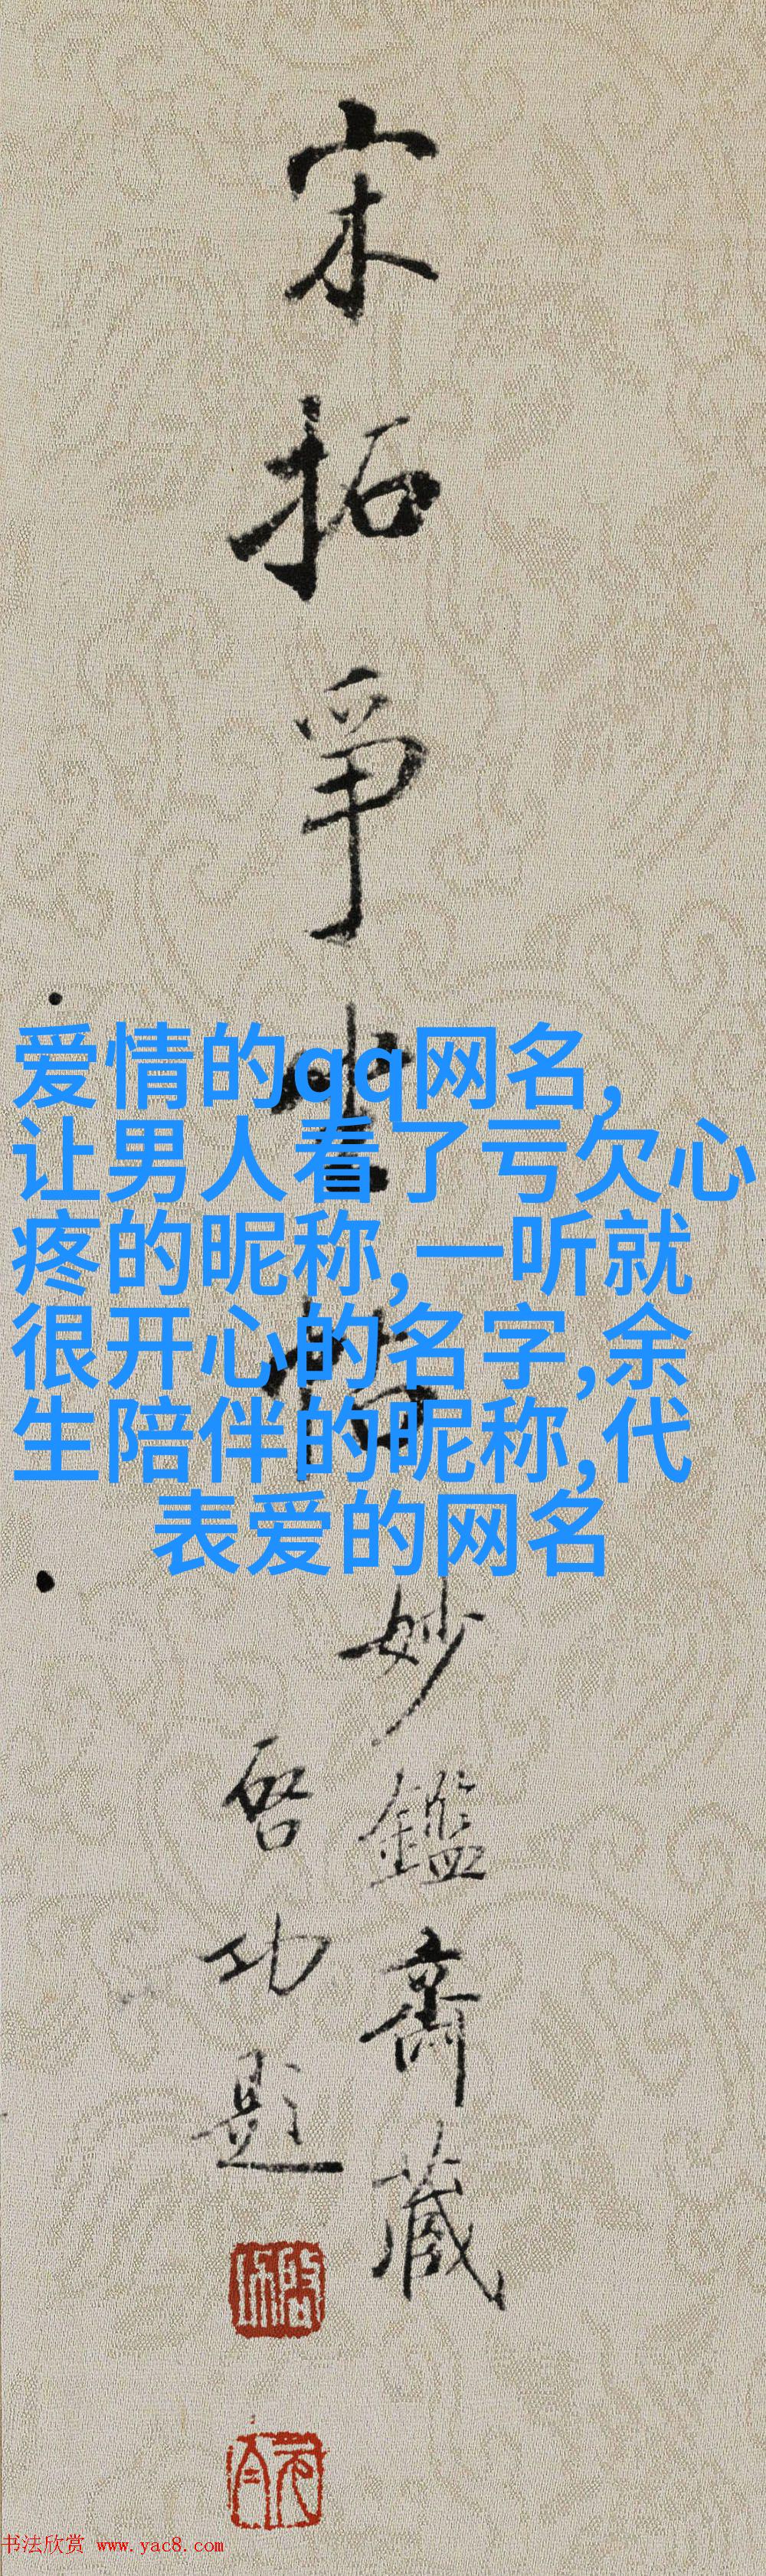 宋拓爭
妙鑑齋藏
啓功題
爱情的qq网名,
让男人看了亏欠心
疼的昵称,一听就
很开心的名字,余
生陪伴的昵称,代
表爱的网名
书法欣赏 www.yac8.com